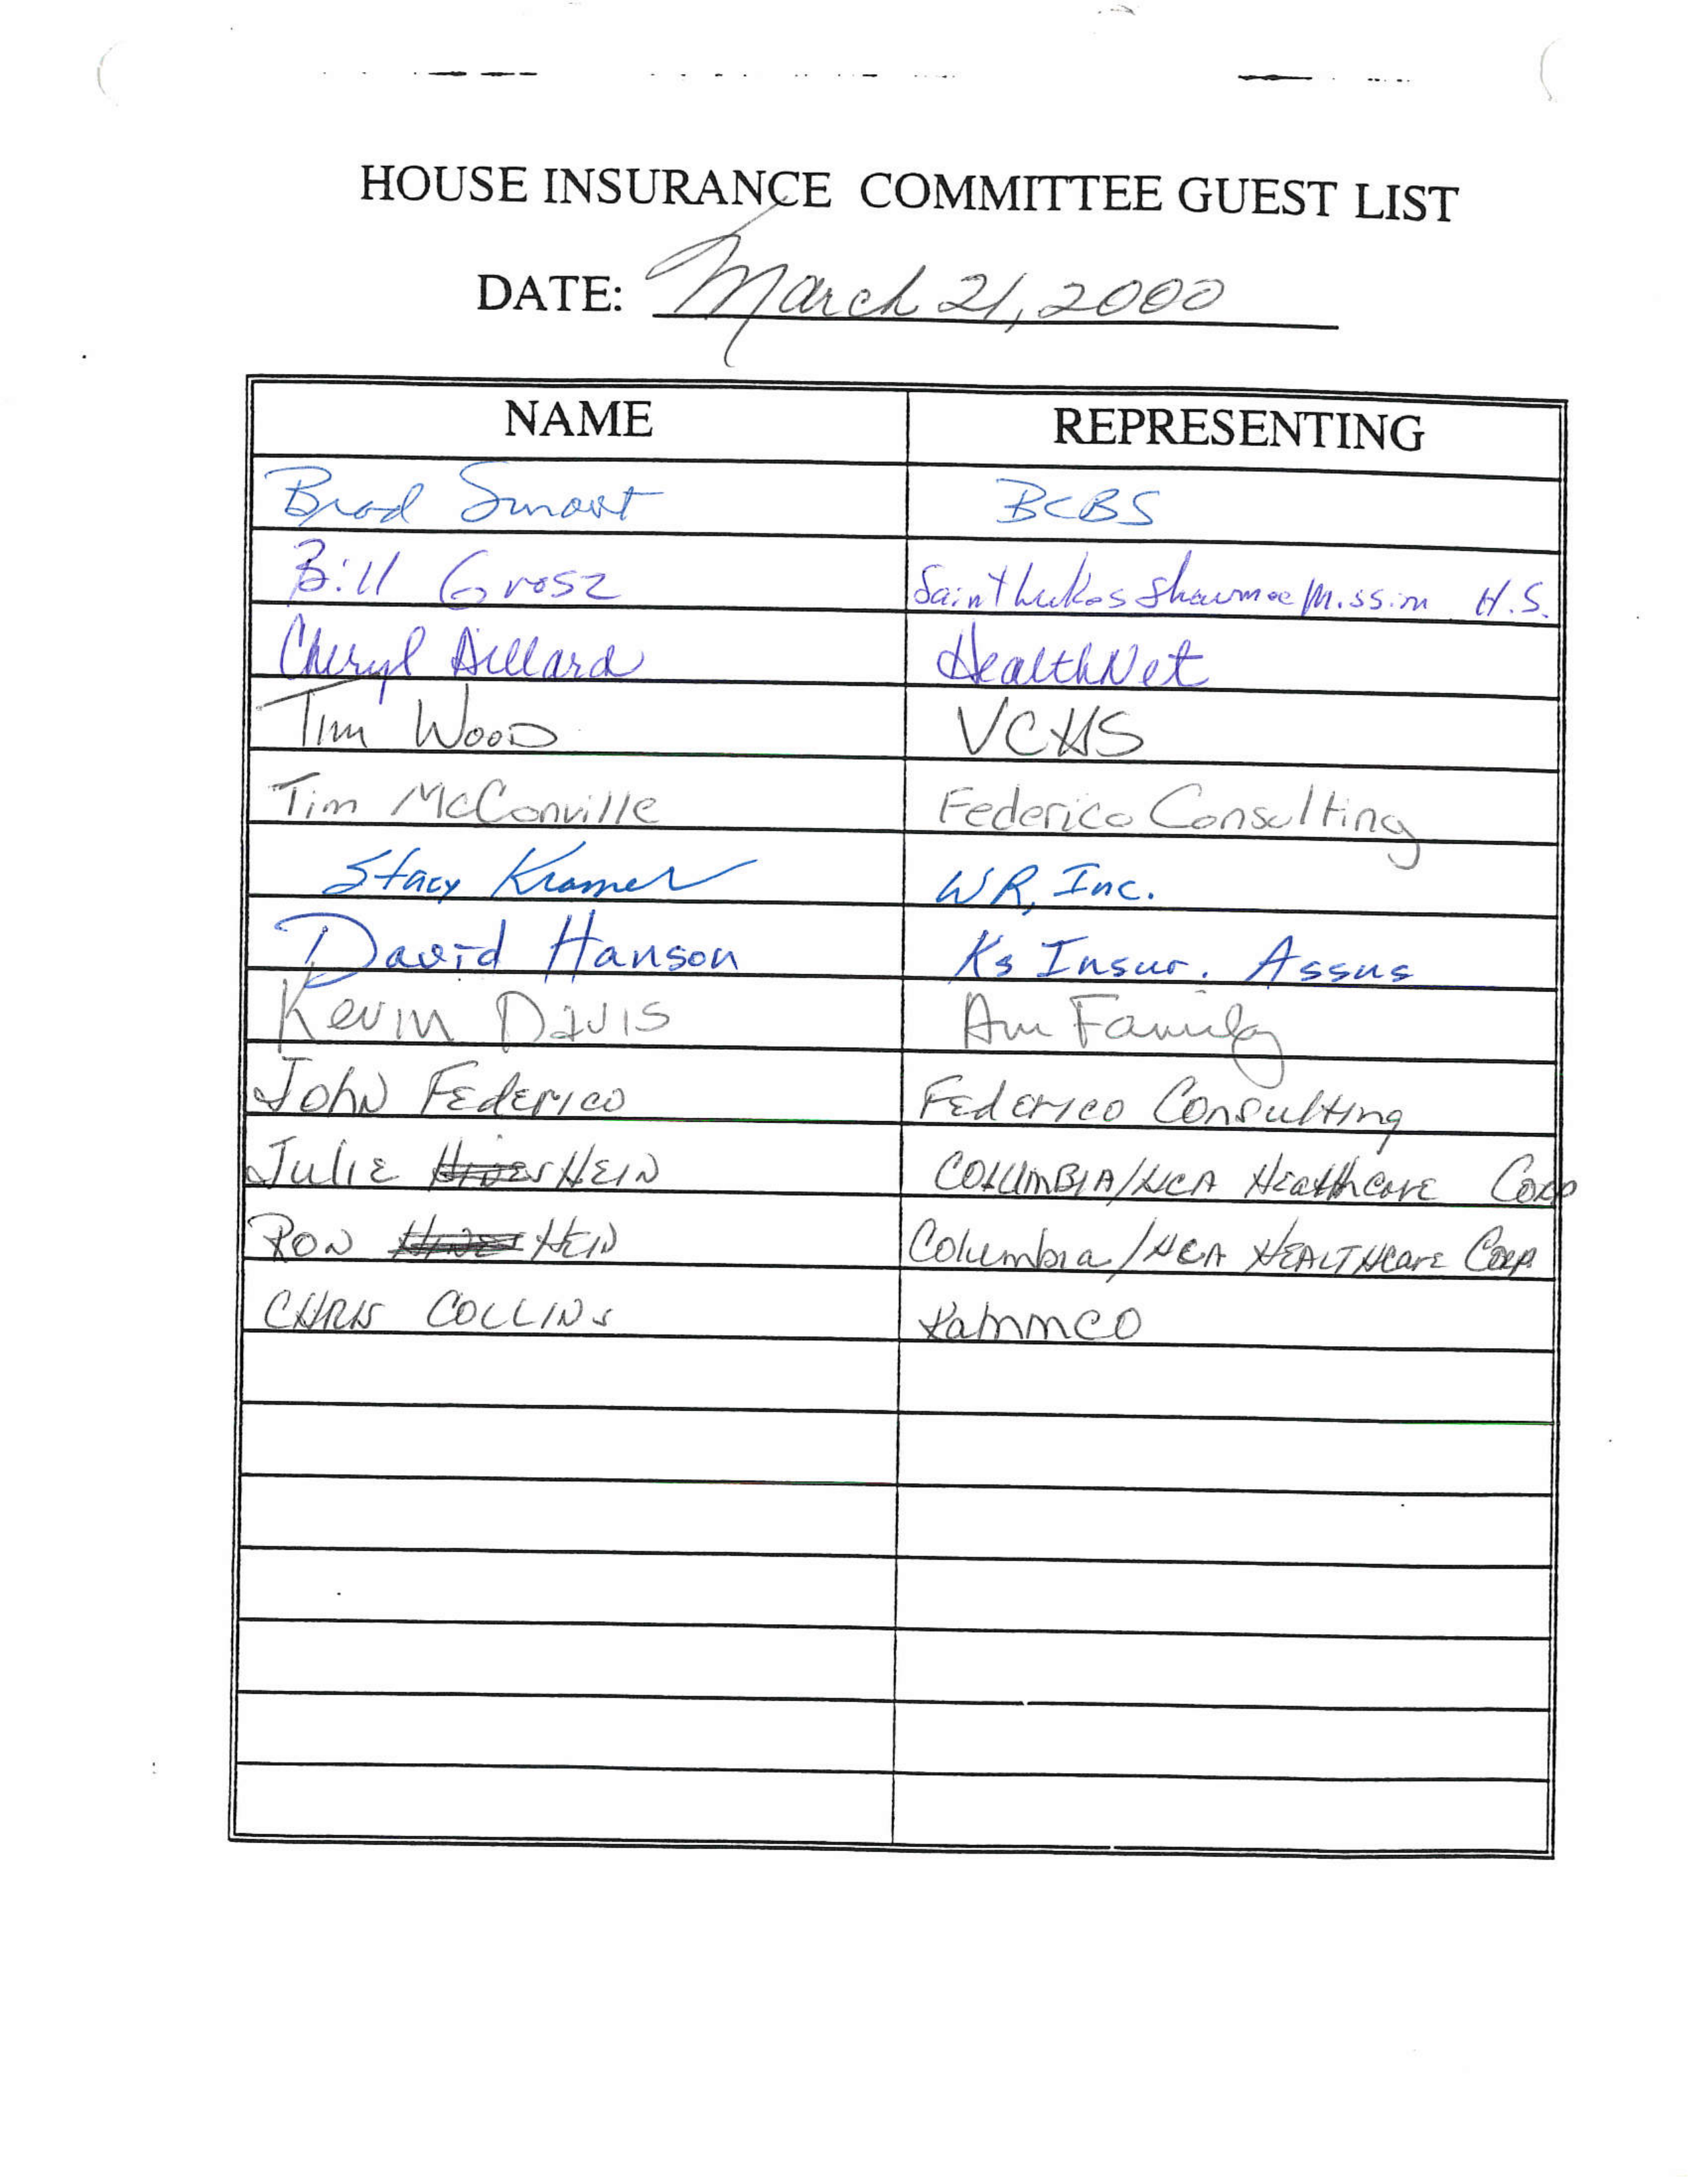 HOUSE INSURANCE COMMITTEE GUEST LIST
DATE: March 21, 2000
NAME REPRESENTING
Brad Smoot BCBS
Bill Grosz Saint Lukes Shawnee Mission H.S.
Cheryl Dillard HealthNet
Tim Wood VCHS
Tim McConville Federico Consulting
Stacy Kramer WR, Inc.
David Hanson Ks Insur. Assns
Kevin Davis Am Family
John Federico Federico Consulting
Julie HEIN COLUMBIA/HCA Healthcare Corp
RON HEIN Columbia/HCA HEALTHCare Corp
CHRIS COLLINS Kammco